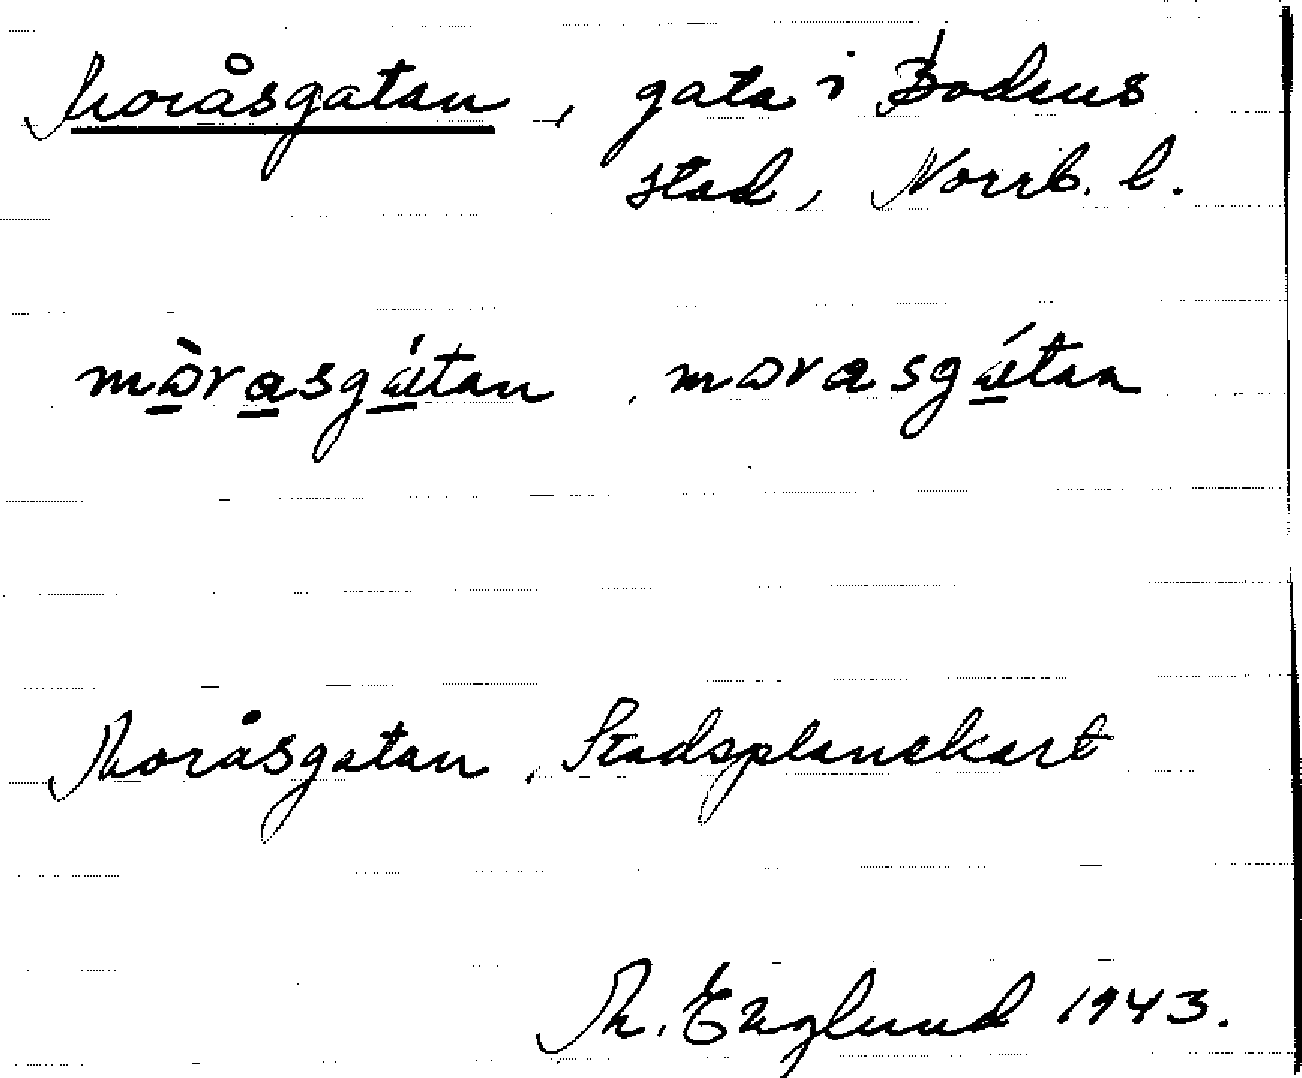 Moråsgatan, gata i Bodens
stad, Norrb. l.
mòrasgátan, morasgátan
Moråsgatan, Stadsplanekart
M. Englund 1943.